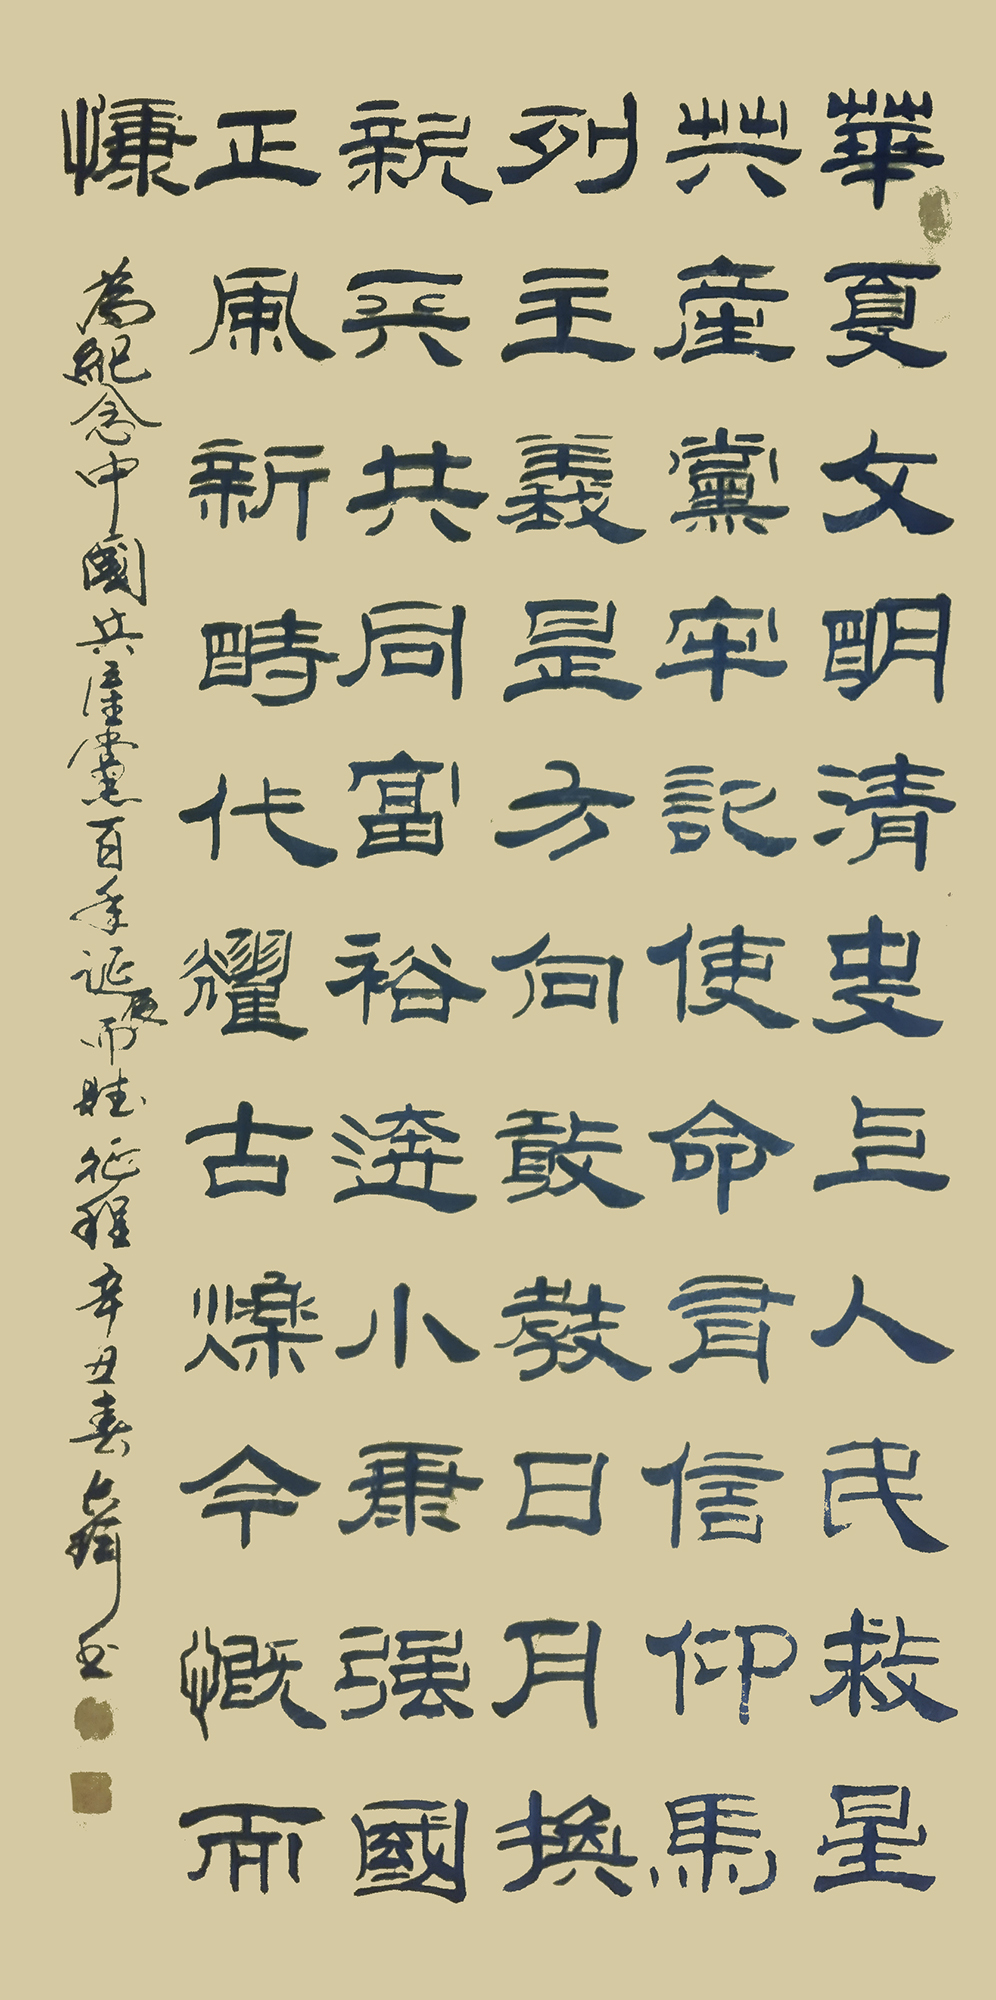 華夏文明清史上人民救星
共產黨牢記使命有信仰馬
列主義是方向敢教日月換
新天共同富裕奔小康強國
正風新時代耀古爍今慨而
慷
為紀念中國共產黨百年誕辰而賦征程辛丑春書